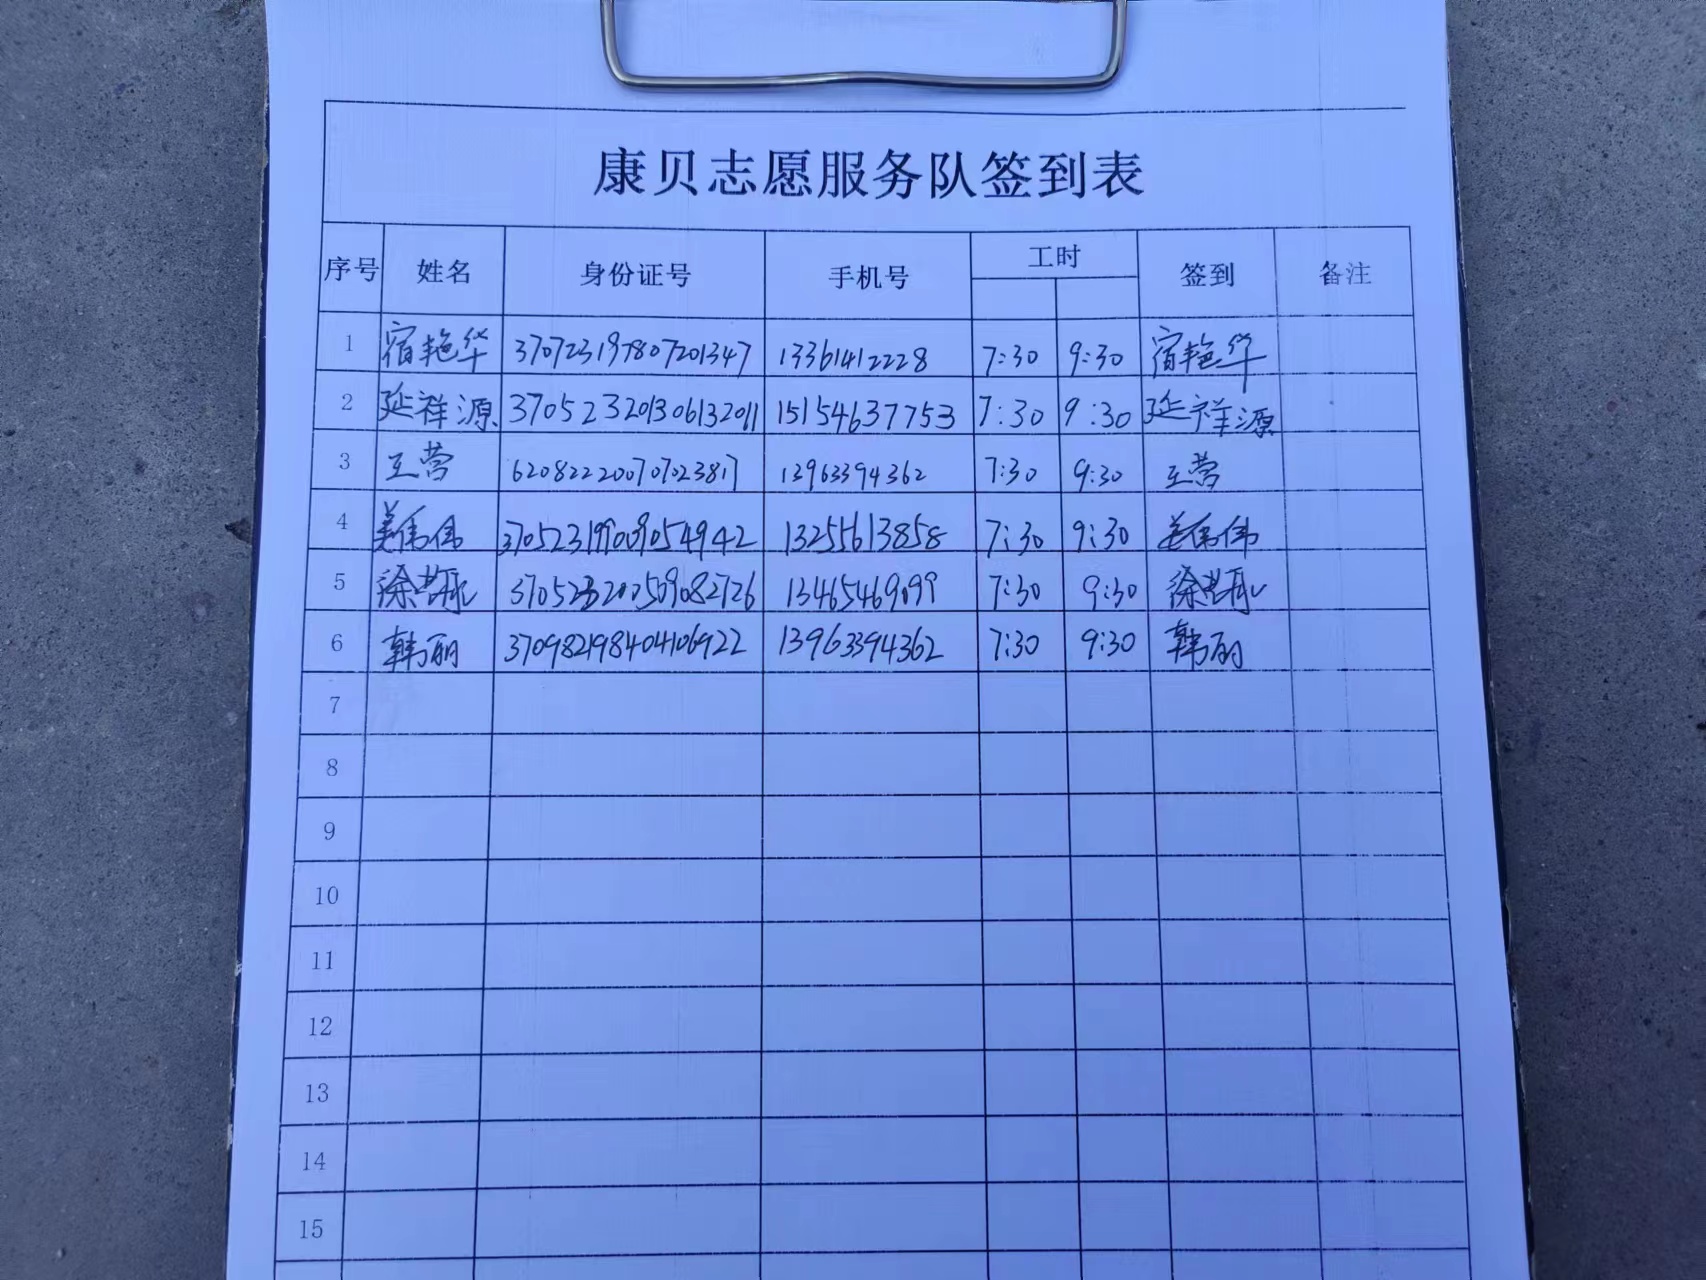 康贝志愿服务队签到表
序号 姓名 身份证号 手机号 工时 签到 备注
1 宿艳华 370723197807201347 13361412228 7:30 9:30 宿艳华
2 延祥源 370523201306132011 15154637753 7:30 9:30 延祥源
3 620822200707023817 13963394362 7:30 9:30
4 姜伟伟 370523199009054942 13255613858 7:30 9:30 姜伟伟
5 徐 13465469099 7:30 9:30 徐
6 韩丽 370982198404106922 13963394362 7:30 9:30 韩丽
7
8
9
10
11
12
13
14
15